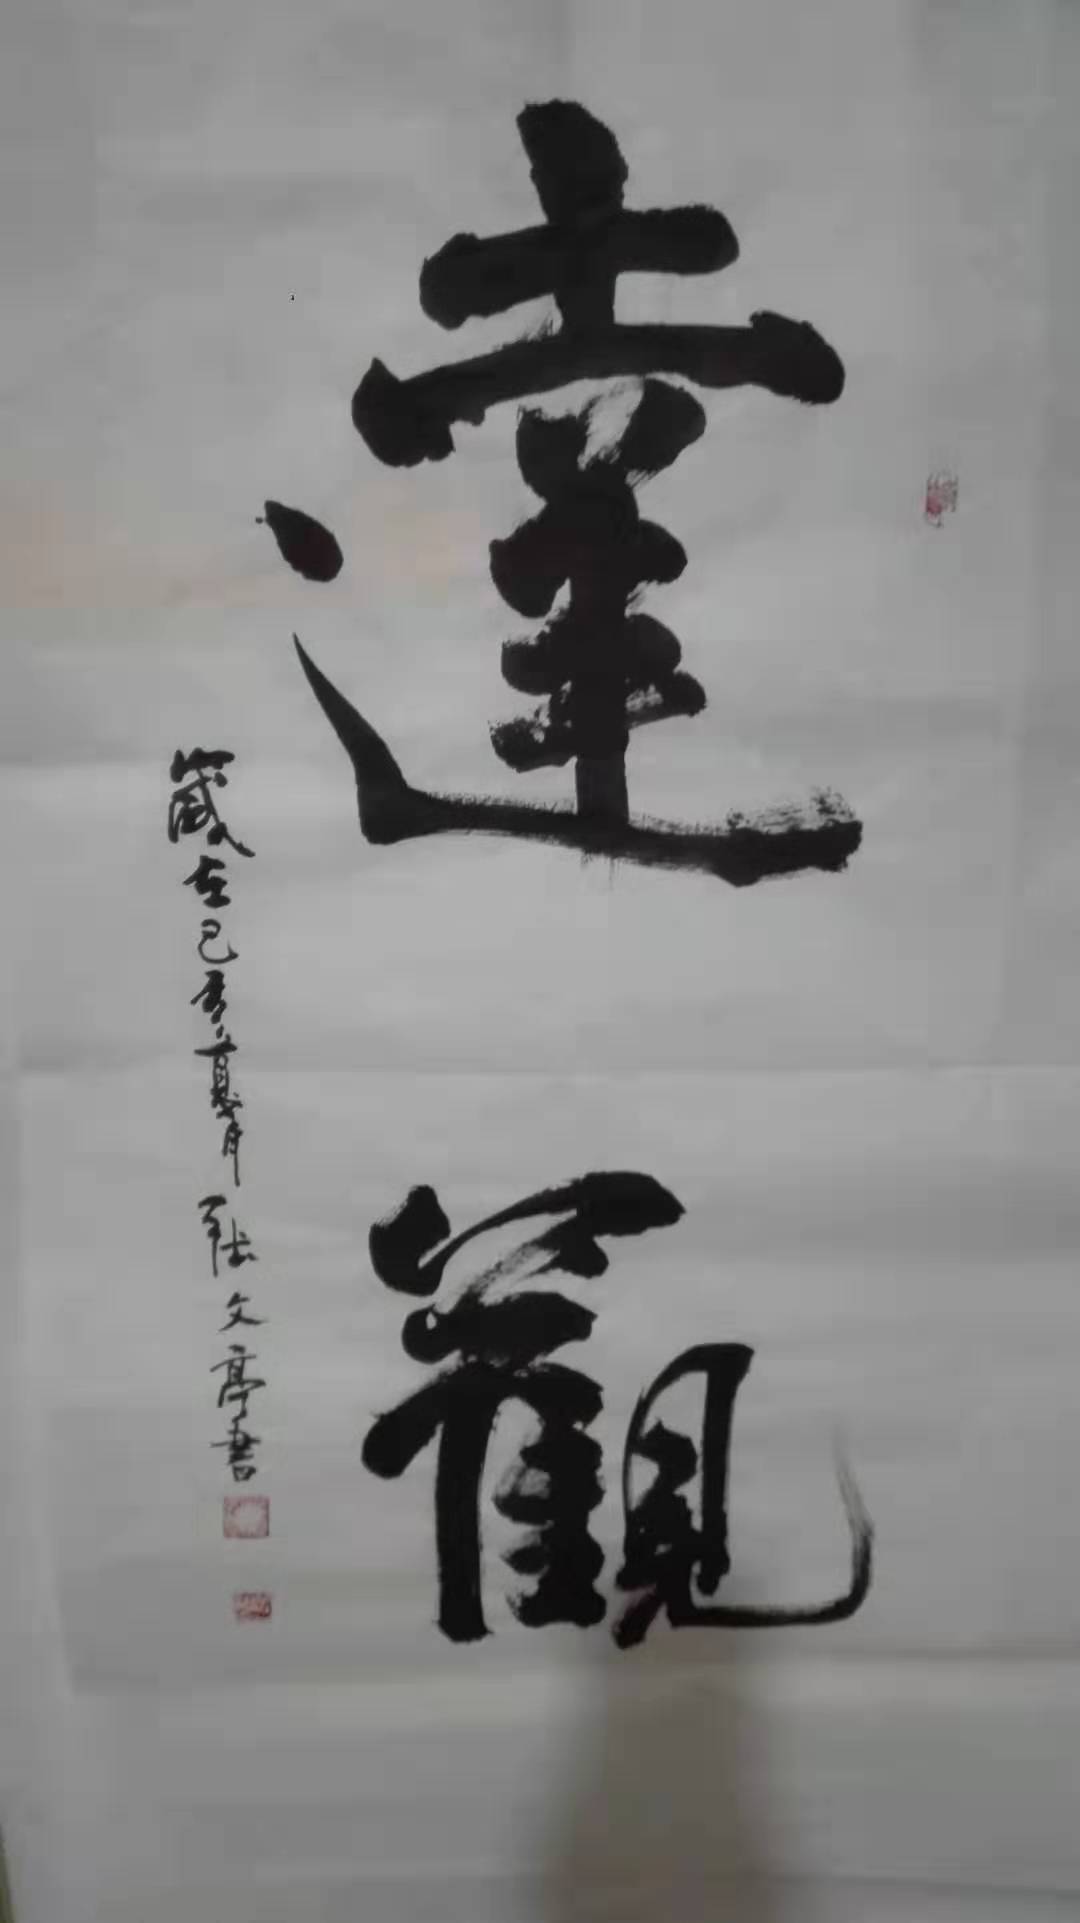 達觀
歲在己亥夏月張文亭書